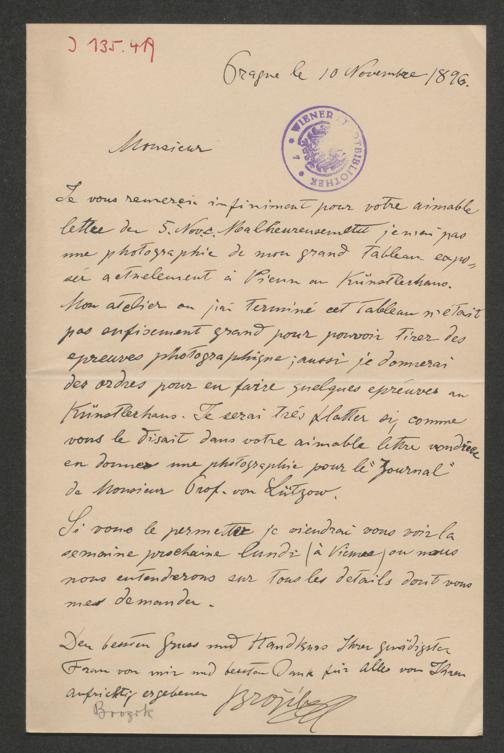 J 135.419
Prague le 10 Novembre 1896.
WIENER STADTBIBLIOTHEK
Monsieur
Je vous remercie infiniment pour votre aimable
lettre du 5. Nov. Malheureusement je n'ai pas
une photographie de mon grand Tableau expo=
sér actuelement à Vienn au Künstlerhaus.
Mon atelier ou j'ai terminé cet Tableau n'était
pas sufisement grand pour pouvoir tirer des
epreuves photographique; aussi je donnerai
des ordres pour en faire quelques epréuves au
Künstlerhaus. Je serai trés flatter si, comme
vous le disait dans votre aimable lettre voudriez
en donner une photographie pour le "Journal"
de Monsieur Prof. von Lützow.
Si vous le permettez je viendrai vous voir la
semaine prochaine lundi (à Vienne) ou nous
nous entenderons sur tous les details dont vous
me demander.
Den besten Gruss und Handkuss Ihrer gnädigsten
Frau von mir und besten Dank für alles von Ihrem
aufrichtig ergebenen Brožik
Brozik